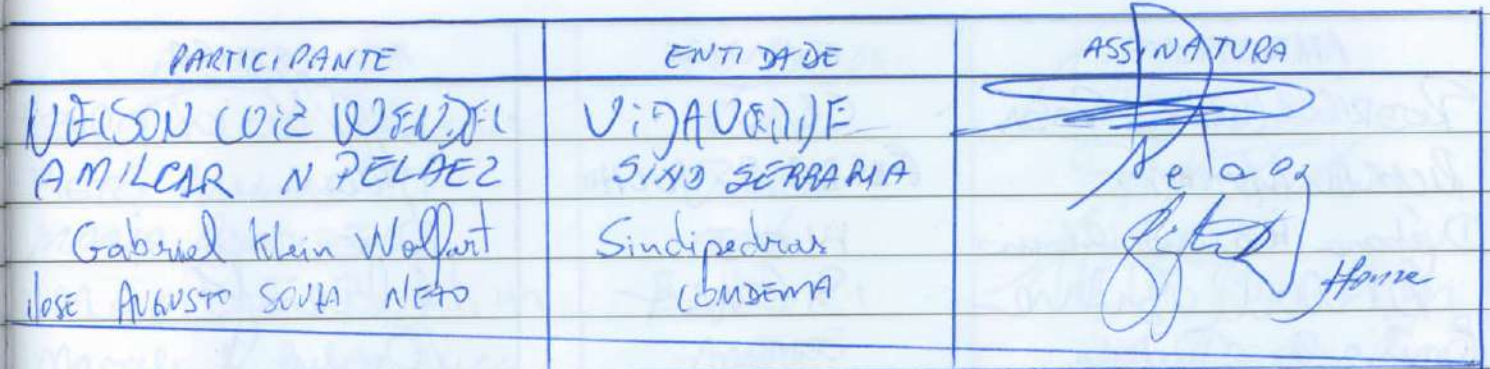 PARTICIPANTE ENTIDADE ASSINATURA
NELSON LUIZ WENDEL VIDAVERDE
AMILCAR N PELAEZ SIND SERRARIA Pelaez
Gabriel Klein Wolfart Sindipedras
JOSE AUGUSTO SOUZA NETO COMDEMA